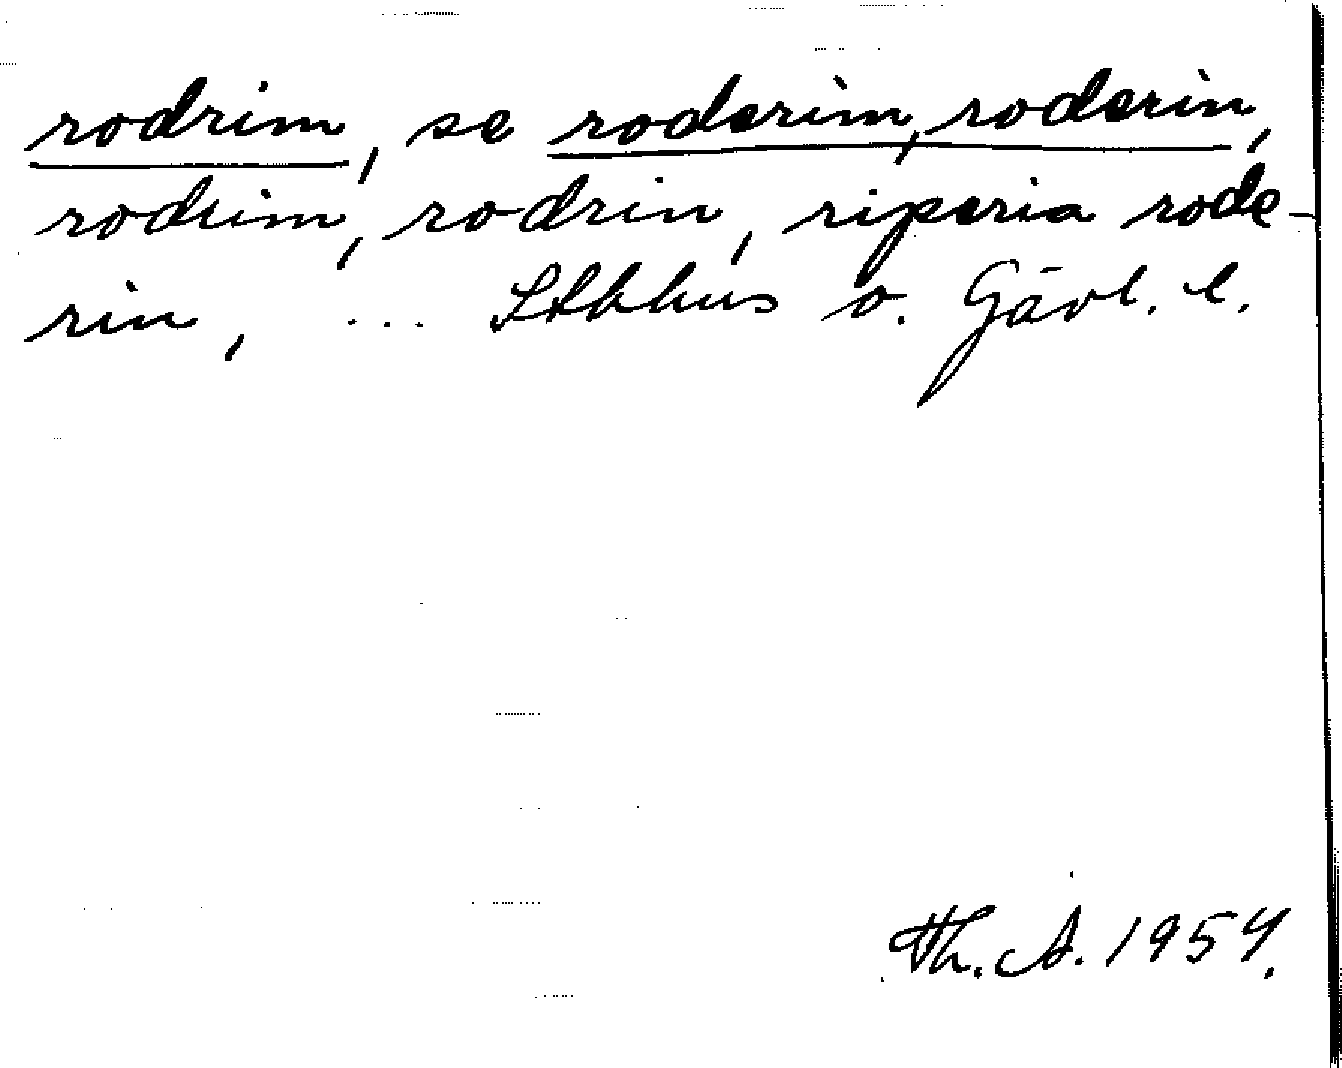 rodrim, se roderim, roderin,
rodrim, rodrin, riperia rode-
rin, ... Stkhus o. Gävl. l.
Th. A. 1954.